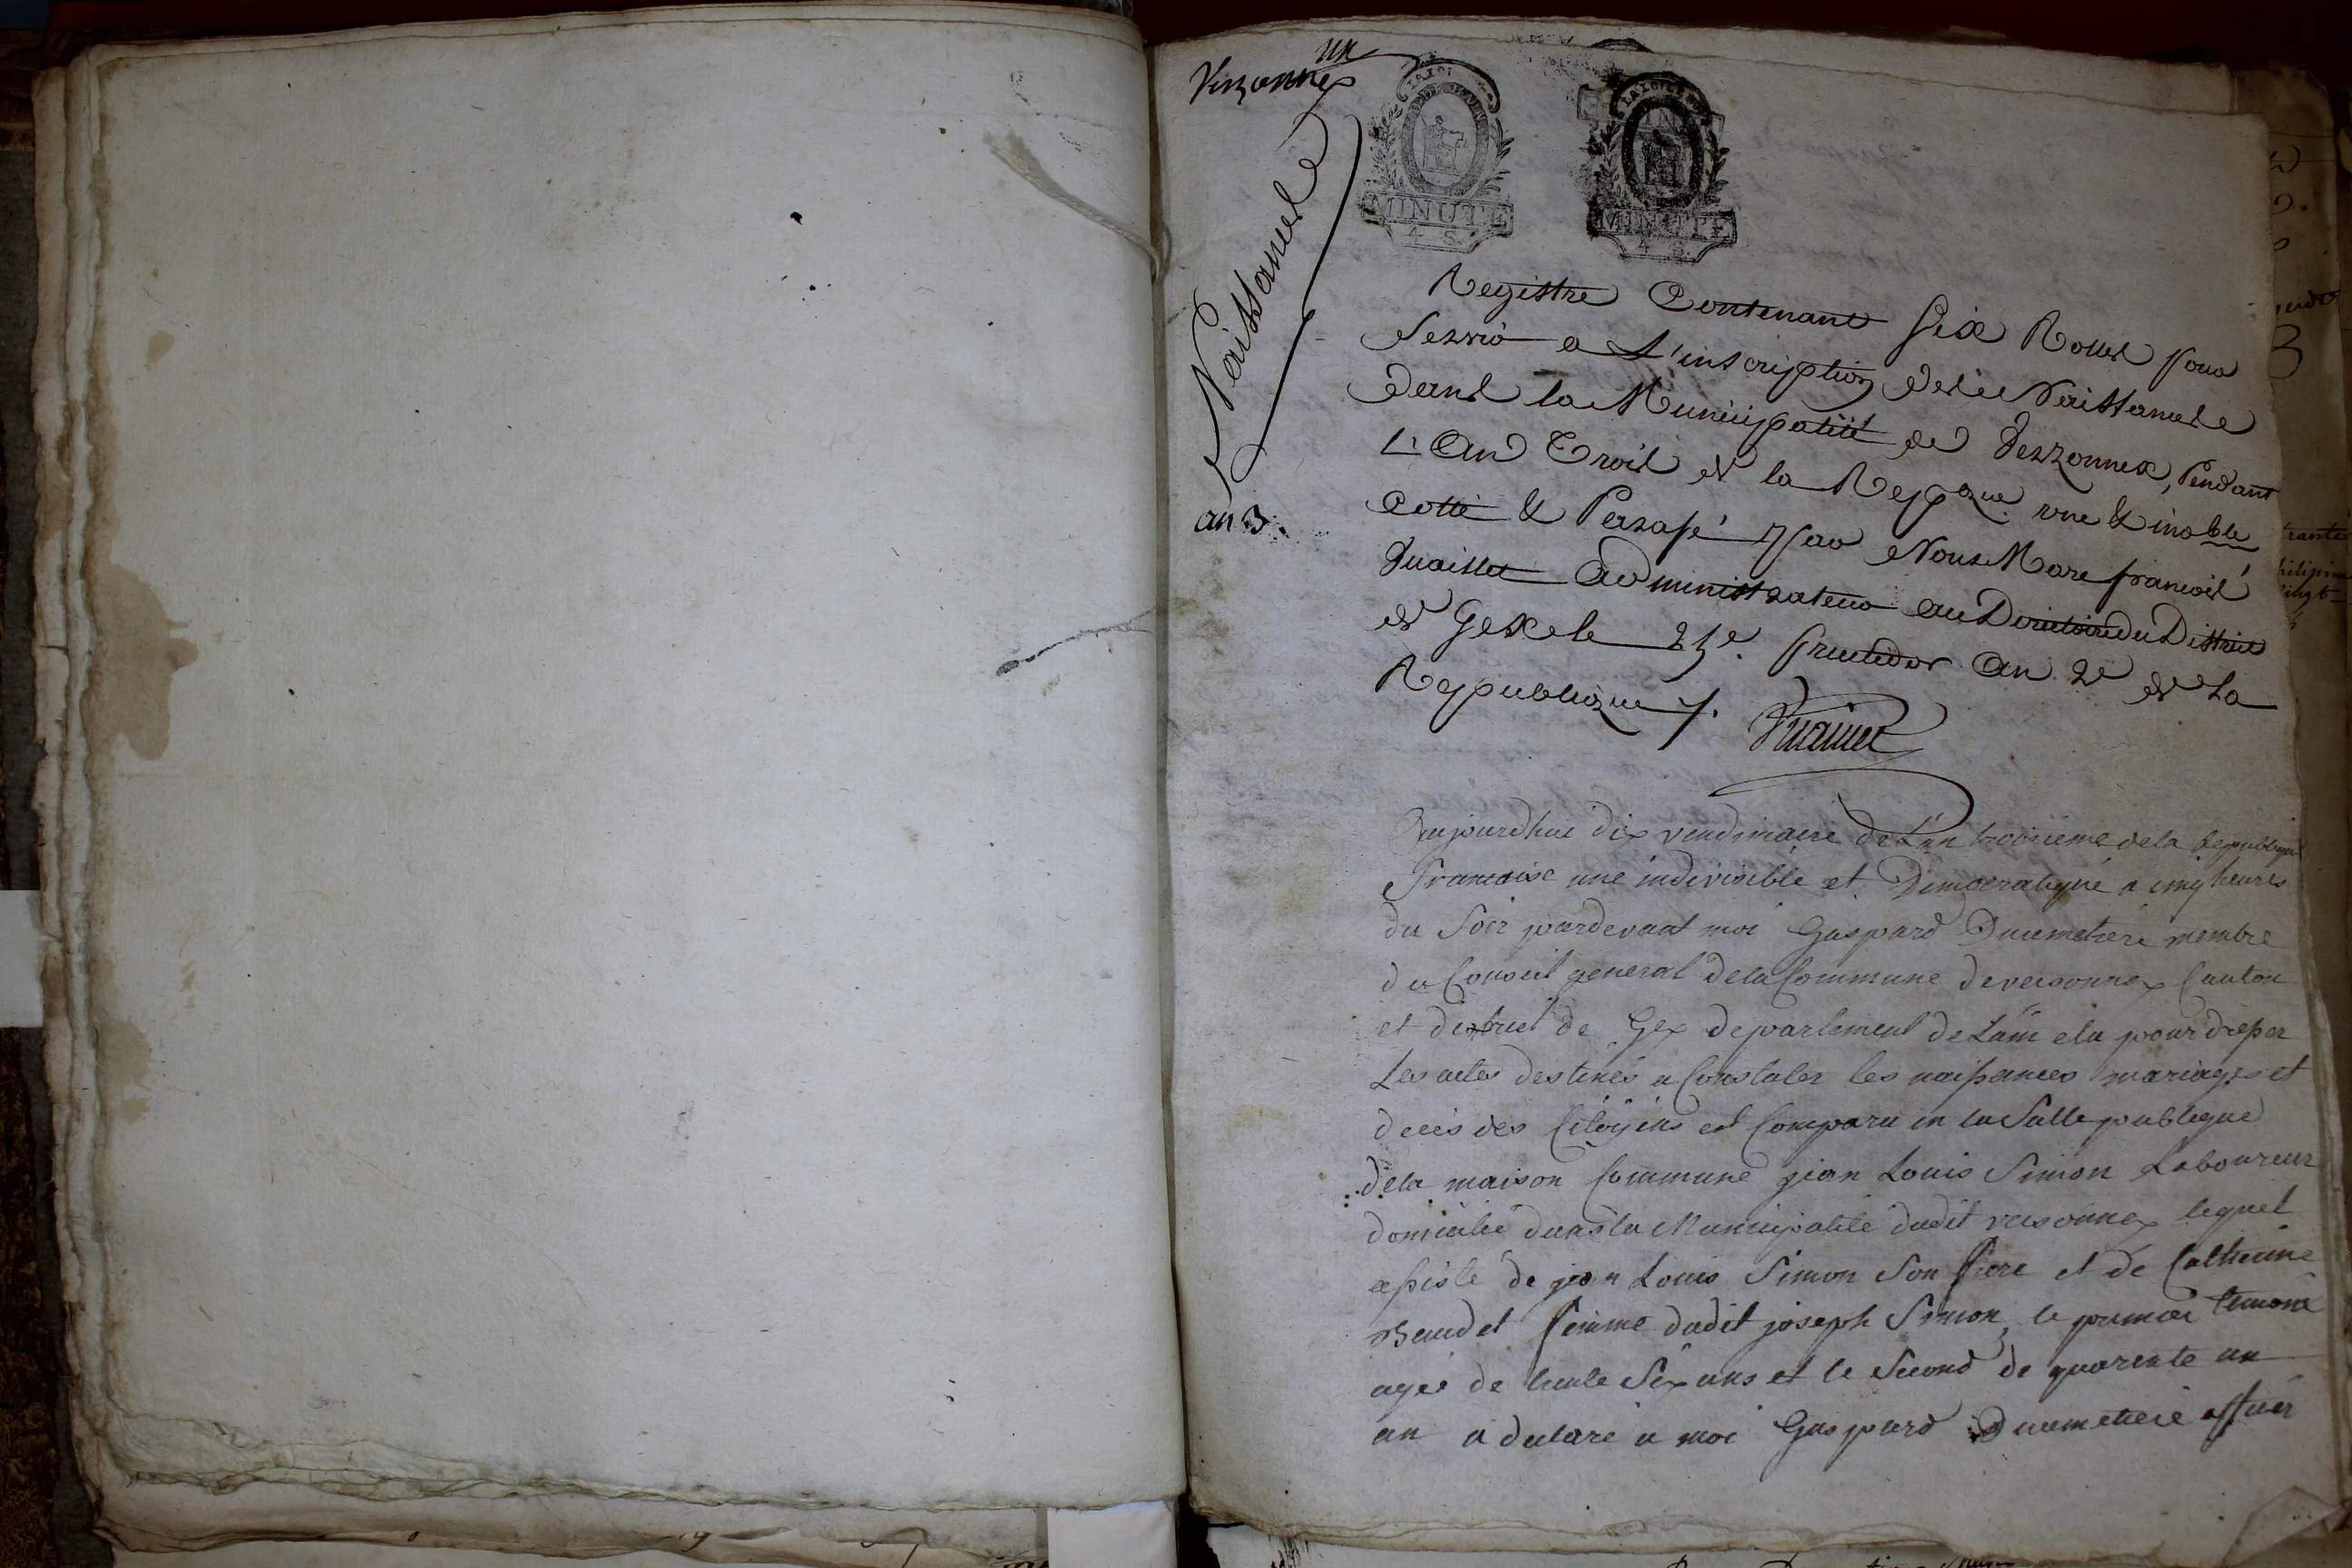 un
Versonnex
Naissances
an 3.
MINUTE
4 S.
MINUTE
4 S.
Registre Contenant Six Rolles pour
Servir a L'inscription des Naissances
dans la Municipalité de Verzonnex, Pendant
L'An Trois de la Repque une & indble
Cotté & Parafé par Nous Marc françois
Administrateur au Directoire du District
de Gex le 25e. fructidor An 2e de La
Republique /.
Aujourdhui dix vendimaire de L'an troisieme de la Republique
francaise une indivisible et Démocratique a cinq heures
du Soir pardevant moi Gaspard Ducimetiere membre
du Conseil general de la Commune de versonnex Canton
et district de Gex departement de Lain elu pour dresser
Les actes destinés a Constater les naissances mariages et
decès des Citoyens est Comparu en la Salle publique
de la maison Commune jean Louis Simon Laboureur
domicilié dans la Municipalité dudit versonnex lequel
assisté de jean Louis Simon Son frere et de Catherine
Baudet femme dudit joseph Simon, le premier temoin
agée de trente Six ans et le Second de quarente un
an a declaré a moi Gaspard Ducimetiere officier